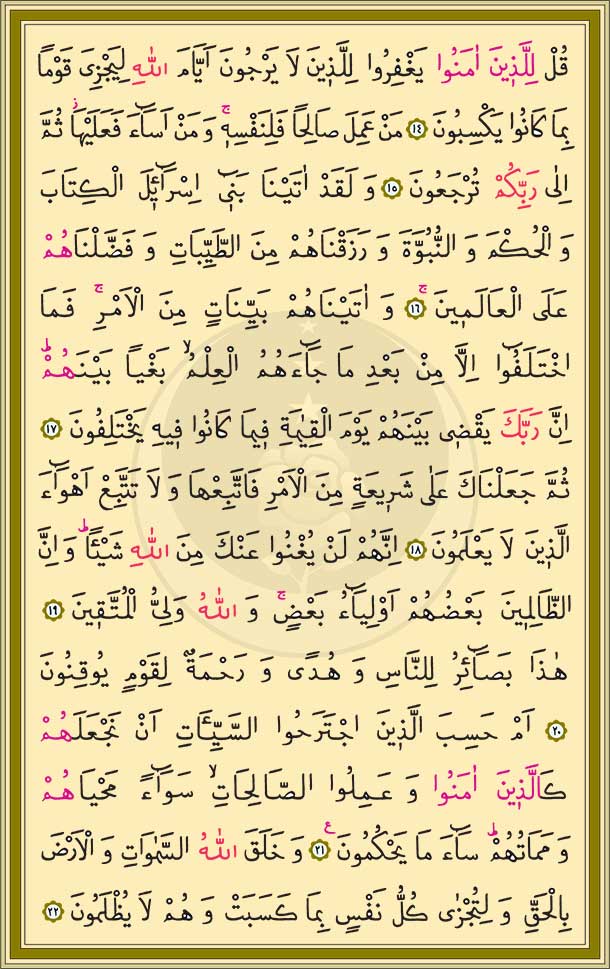 قُلْ لِلَّذٖينَ اٰمَنُوا يَغْفِرُوا لِلَّذٖينَ لَا يَرْجُونَ اَيَّامَ اللّٰهِ لِيَجْزِىَ قَوْماً
بِمَا كَانُوا يَكْسِبُونَ ﴿١٤﴾ مَنْ عَمِلَ صَالِحاً فَلِنَفْسِهٖۚ وَ مَنْ اَسَٓاءَ فَعَلَيْهَاؗ ثُمَّ
اِلٰى رَبِّكُمْ تُرْجَعُونَ ﴿١٥﴾ وَ لَقَدْ اٰتَيْنَا بَنٖٓى اِسْرَٓائٖلَ الْكِتَابَ
وَ الْحُكْمَ وَ النُّبُوَّةَ وَ رَزَقْنَاهُمْ مِنَ الطَّيِّبَاتِ وَ فَضَّلْنَاهُمْ
عَلَى الْعَالَمٖينَۚ ﴿١٦﴾ وَ اٰتَيْنَاهُمْ بَيِّنَاتٍ مِنَ الْاَمْرِۚ فَمَا
اخْتَلَفُٓوا اِلَّا مِنْ بَعْدِ مَا جَٓاءَهُمُ الْعِلْمُۙ بَغْياً بَيْنَهُمْؕ
اِنَّ رَبَّكَ يَقْضٖى بَيْنَهُمْ يَوْمَ الْقِيٰمَةِ فٖيمَا كَانُوا فٖيهِ يَخْتَلِفُونَ ﴿١٧﴾
ثُمَّ جَعَلْنَاكَ عَلٰى شَرٖيعَةٍ مِنَ الْاَمْرِ فَاتَّبِعْهَا وَ لَا تَتَّبِعْ اَهْوَٓاءَ
الَّذٖينَ لَا يَعْلَمُونَ ﴿١٨﴾ اِنَّهُمْ لَنْ يُغْنُوا عَنْكَ مِنَ اللّٰهِ شَيْـٔاًؕ وَ اِنَّ
الظَّالِمٖينَ بَعْضُهُمْ اَوْلِيَٓاءُ بَعْضٍۚ وَ اللّٰهُ وَلِىُّ الْمُتَّقٖينَ ﴿١٩﴾
هٰذَا بَصَٓائِرُ لِلنَّاسِ وَ هُدًى وَ رَحْمَةٌ لِقَوْمٍ يُوقِنُونَ
﴿٢٠﴾ اَمْ حَسِبَ الَّذٖينَ اجْتَرَحُوا السَّيِّـَٔاتِ اَنْ نَجْعَلَهُمْ
كَالَّذٖينَ اٰمَنُوا وَ عَمِلُوا الصَّالِحَاتِۙ سَوَٓاءً مَحْيَاهُمْ
وَ مَمَاتُهُمْؕ سَٓاءَ مَا يَحْكُمُونَࣖ ﴿٢١﴾ وَ خَلَقَ اللّٰهُ السَّمٰوَاتِ وَ الْاَرْضَ
بِالْحَقِّ وَ لِتُجْزٰى كُلُّ نَفْسٍ بِمَا كَسَبَتْ وَ هُمْ لَا يُظْلَمُونَ ﴿٢٢﴾